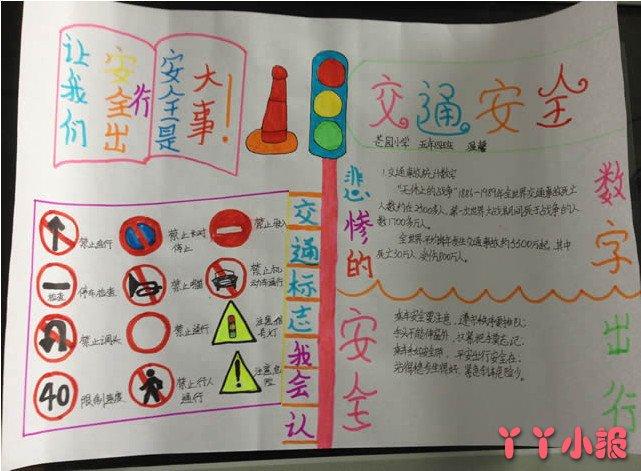 让我们
安全出
行
安全是
大事！
交通安全
苍园小学 五年四班 温馨
悲惨的
数字
1.交通事故统计数字
"无休止的战争"1886-1989年全世界交通事故死亡
人数约在2900多人，第一次世界大战期间死于战争的人
数1700多万人。
全世界平均每年发生交通事故约3300万起，其中
死亡30万人，受伤800万人。
交通标志我会认
禁止直行
禁止长时
停止
禁止驶入
检查
停车检查
禁止鸣喇
禁止机
动车通行
禁止调头
禁止通行
注意信
号灯
40
限制速度
禁止行人
通行
注意危
险
安全
出行
乘车安全要注意，遵守秩序要排队；
手头不能伸窗外，
平安出行安全在；
丫丫小报